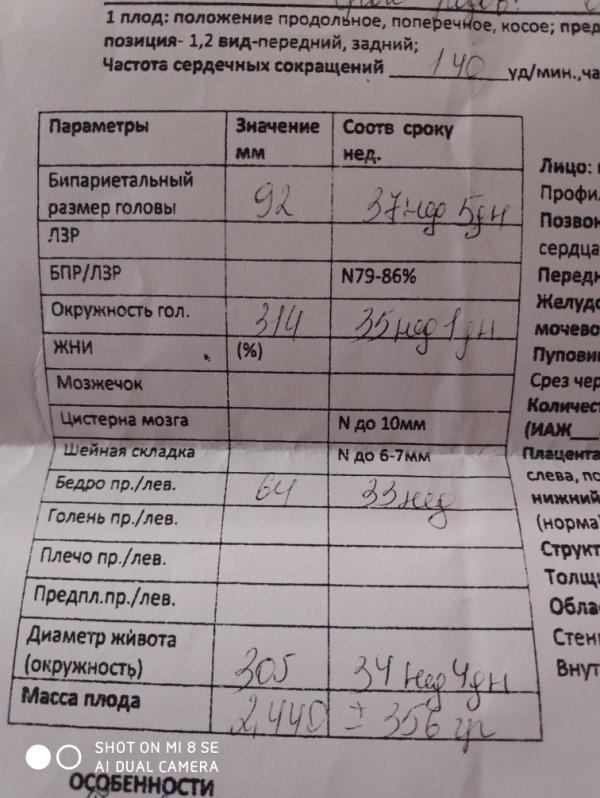 1 плод: положение продольное, поперечное, косое;
позиция- 1,2 вид-передний, задний;
Частота сердечных сокращений 140 уд/мин.,
Параметры Значение мм Соотв сроку нед.
Бипариетальный размер головы 92 37 нед 5 дн
ЛЗР
БПР/ЛЗР N79-86%
Окружность гол. 314 35 нед 1 дн
ЖНИ (%)
Мозжечок
Цистерна мозга N до 10мм
Шейная складка N до 6-7мм
Бедро пр./лев. 64 33 нед
Голень пр./лев.
Плечо пр./лев.
Предпл.пр./лев.
Диаметр живота (окружность) 305 34 нед 4 дн
Масса плода 2,440 ± 356 гр
ОСОБЕННОСТИ
Лицо:
сердца
(ИАЖ
Плацента
слева,
нижний
(норма)
SHOT ON MI 8 SE
AI DUAL CAMERA